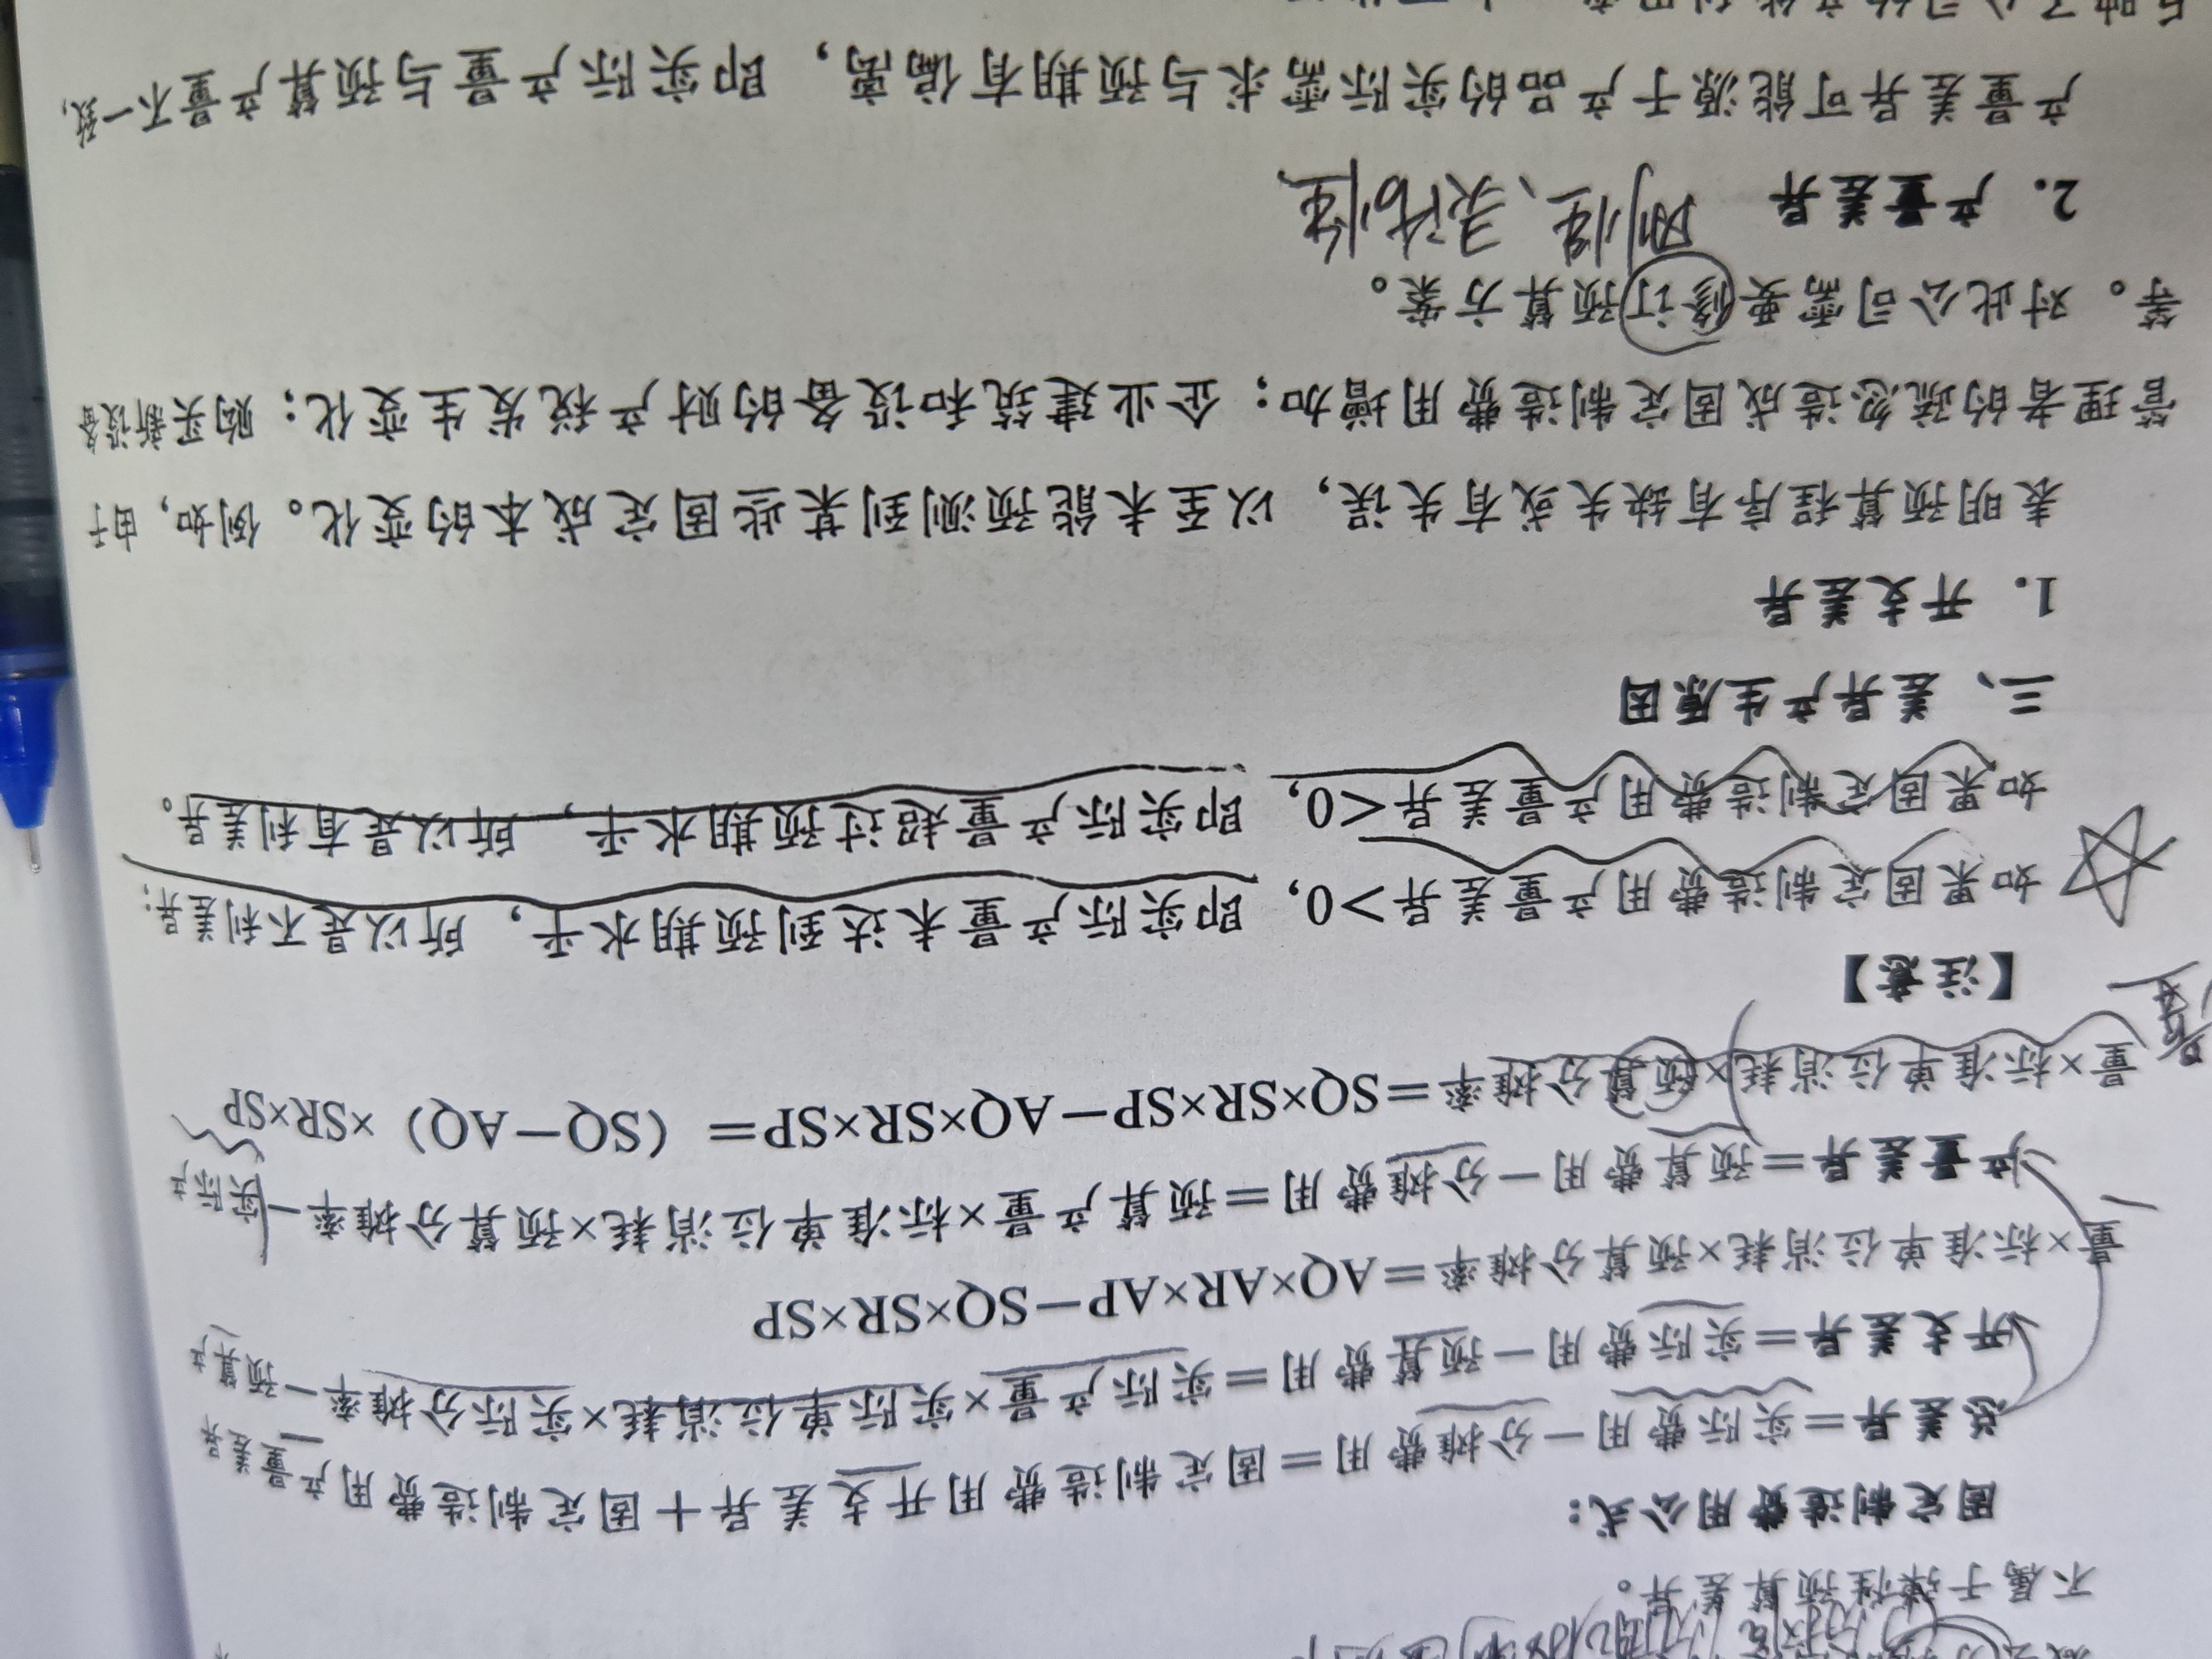 不属于弹性预算差异。
固定制造费用公式:
总差异=实际费用-分摊费用=固定制造费用开支差异+固定制造费用产量差异
开支差异=实际费用-预算费用=实际产量×实际单位消耗×实际分摊率-预算产
量×标准单位消耗×预算分摊率=AQ×AR×AP-SQ×SR×SP
产量差异=预算费用-分摊费用=预算产量×标准单位消耗×预算分摊率-实际产
量×标准单位消耗×预算分摊率=SQ×SR×SP-AQ×SR×SP=(SQ-AQ)×SR×SP
【注意】
如果固定制造费用产量差异>0,即实际产量未达到预期水平,所以是不利差异;
如果固定制造费用产量差异<0,即实际产量超过预期水平,所以是有利差异。
三、差异产生原因
1. 开支差异
表明预算程序有缺失或有失误,以至未能预测到某些固定成本的变化。例如,由于
管理者的疏忽造成固定制造费用增加;企业建筑和设备的财产税发生变化;购买新设备
等。对此公司需要修订预算方案。
2. 产量差异 刚性、灵活性
产量差异可能源于产品的实际需求与预期有偏离,即实际产量与预算产量不一致,